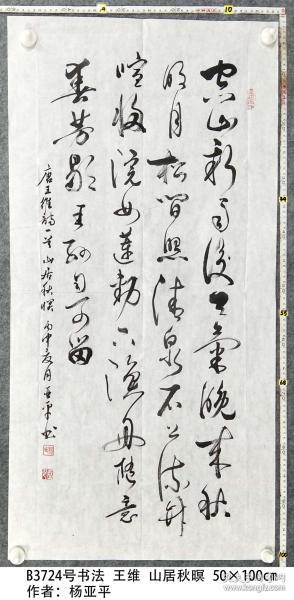 空山新雨後天氣晚来秋
明月松間照清泉石上流竹
喧歸浣女蓮動下漁舟随意
春芳歇王孫自可留
唐王維詩一首 山居秋暝 丙申夏月 亚平书
B3724号书法 王维 山居秋暝 50×100cm
作者：杨亚平